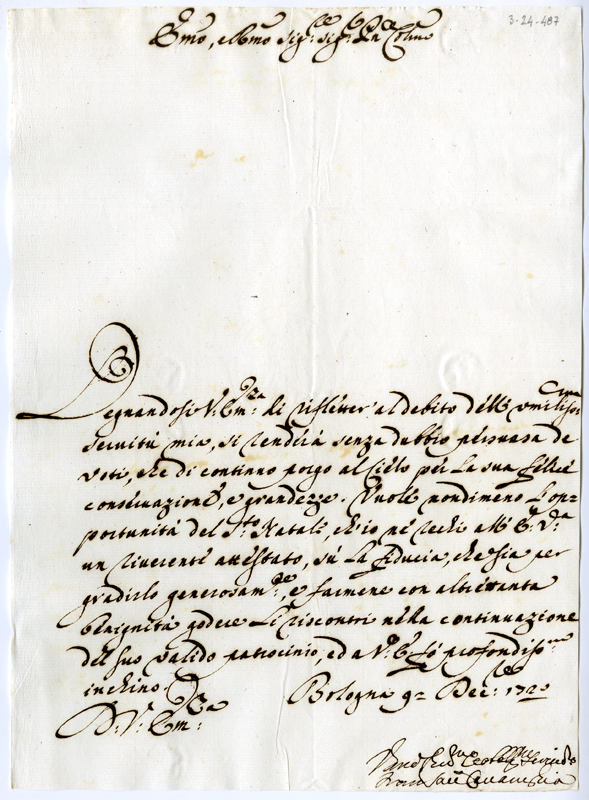 3-24-487
Emo, e Rmo Sig.re Sig.r Pne Colmo
Degnandosi V. Em.za di rifletter' al debito dell' umiliss.ma
servitù mia, si renderà senza dubbio persuasa de
voti, che di continuo porgo al Cielo per la sua felice
conservazione, e grandezze. Vuole nondimeno l'op-
portunità del S.to Natale, ch'io ne rechi all' E. V.a
un riverente attestato, sù la fiducia, che sia per
gradirlo generosam.te, e farmene con altretanta
benignità godere li riscontri nella continuazione
del suo valido patrocinio, ed a V. E. fò profondiss.mo
inchino.
Bologna 9 Dec.bre 172
D. V. Em.za